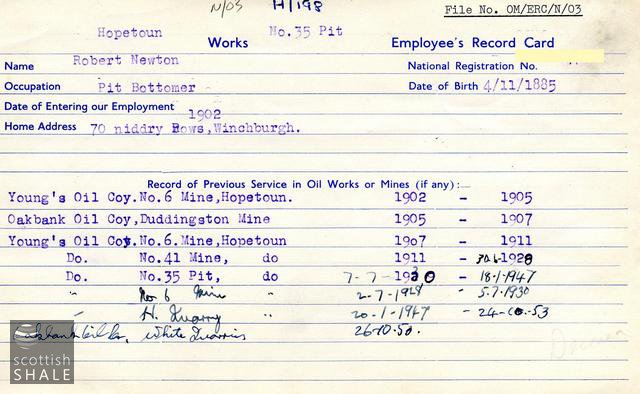 N/03 H/198 File No. OM/ERC/N/03
Hopetoun Works No.35 Pit Employee's Record Card
Name Robert Newton National Registration No.
Occupation Pit Bottomer Date of Birth 4/11/1885
Date of Entering our Employment 1902
Home Address 70 niddry Rows,Winchburgh.
Record of Previous Service in Oil Works or Mines (if any):—
Young's Oil Coy.No.6 Mine,Hopetoun. 1902 - 1905
Oakbank Oil Coy,Duddingston Mine 1905 - 1907
Young's Oil Coy.No.6.Mine,Hopetoun 1907 - 1911
Do. No.41 Mine, do 1911 - 30.6.1928
Do. No.35 Pit, do 7-7-1930 - 18.1.1947
" No. 6 Mine " 2-7-1928 - 5.7.1930
" H. Quarry " 20-1-1947 - 24-10-53
Oakbank Oil Co, White Quarries 26-10-50.
scottish
SHALE